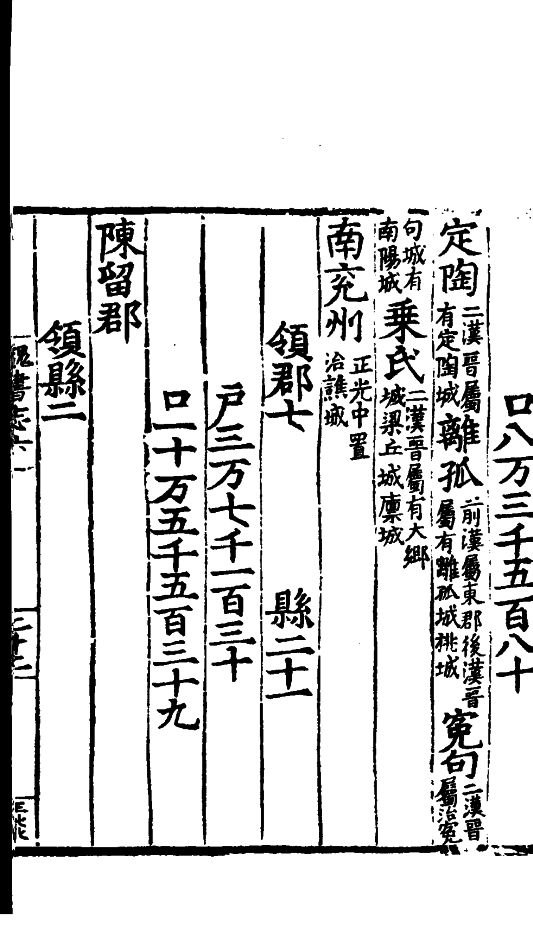 口八万三千五百八十
定陶二漢晉屬有定陶城離狐前漢屬東郡後漢晉屬有離狐城桃城寃句二漢晉屬治寃
句城有南陽城乗氏二漢晉屬有大鄉城梁丘城廪城
南兖州正光中置治譙城
領郡七 縣二十一
戶三万七千一百三十
口一十万五千五百三十九
陳留郡
領縣二
魏書志六